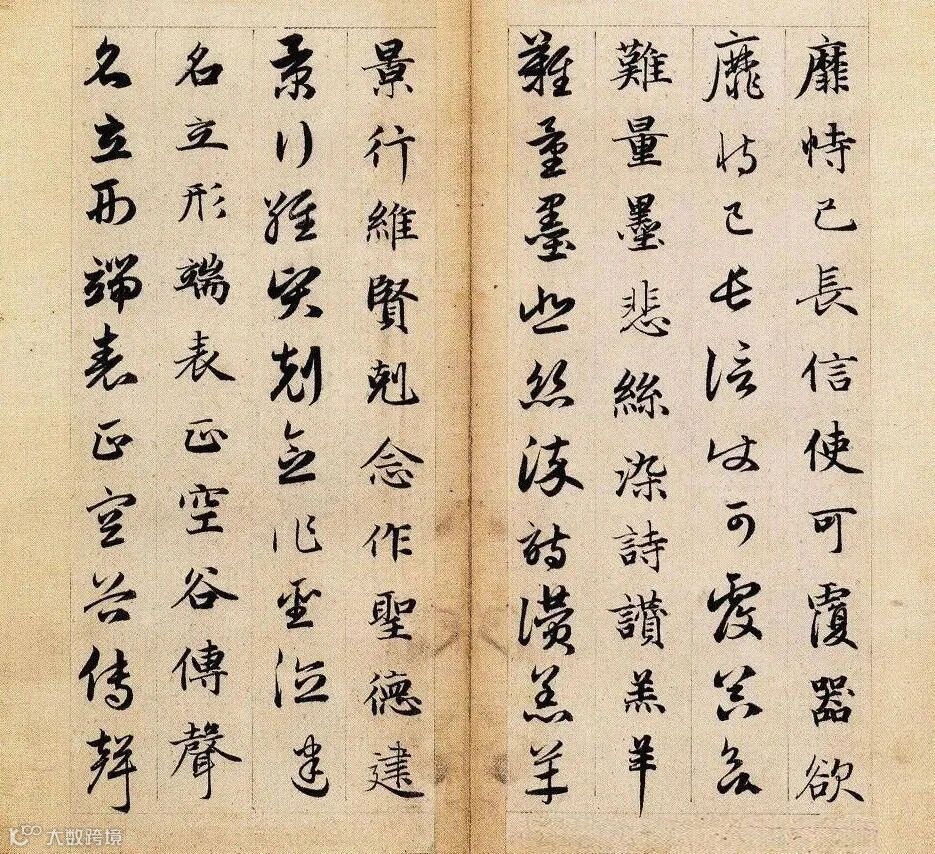 靡恃己長信使可覆器欲
靡恃己長信使可覆器欲
難量墨悲絲染詩讚羔羊
難量墨悲絲染詩讚羔羊
景行維賢剋念作聖德建
景行維賢剋念作聖德建
名立形端表正空谷傳聲
名立形端表正空谷傳聲
大数跨境